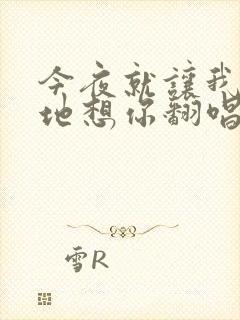 今夜就讓我
地想你翻唱
雪R